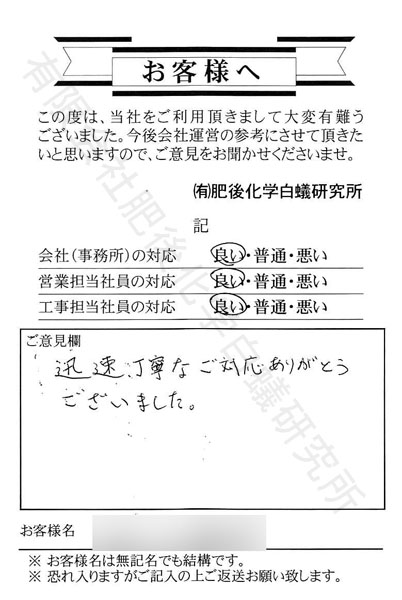 お客様へ
この度は、当社をご利用頂きまして大変有難う
ございました。今後会社運営の参考にさせて頂きた
いと思いますので、ご意見をお聞かせくださいませ。
㈲肥後化学白蟻研究所
記
会社(事務所)の対応 良い・普通・悪い
営業担当社員の対応 良い・普通・悪い
工事担当社員の対応 良い・普通・悪い
ご意見欄
迅速、丁寧なご対応ありがとう
ございました。
お客様名
※ お客様名は無記名でも結構です。
※ 恐れ入りますがご記入の上ご返送お願い致します。
有限会社肥後化学白蟻研究所